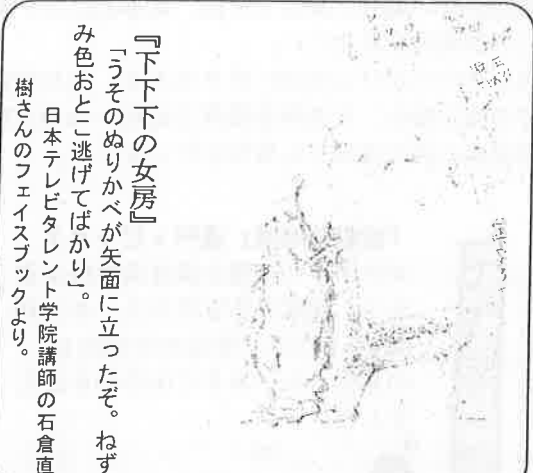 『下下下の女房』
「うそのぬりかべが矢面に立ったぞ。ねず
み色おとこ逃げてばかり」。
日本テレビタレント学院講師の石倉直
樹さんのフェイスブックより。